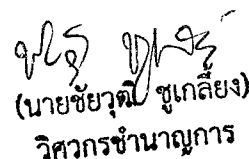 (นายชัยวุฒิ ชูเกลี้ยง)
วิศวกรชำนาญการ